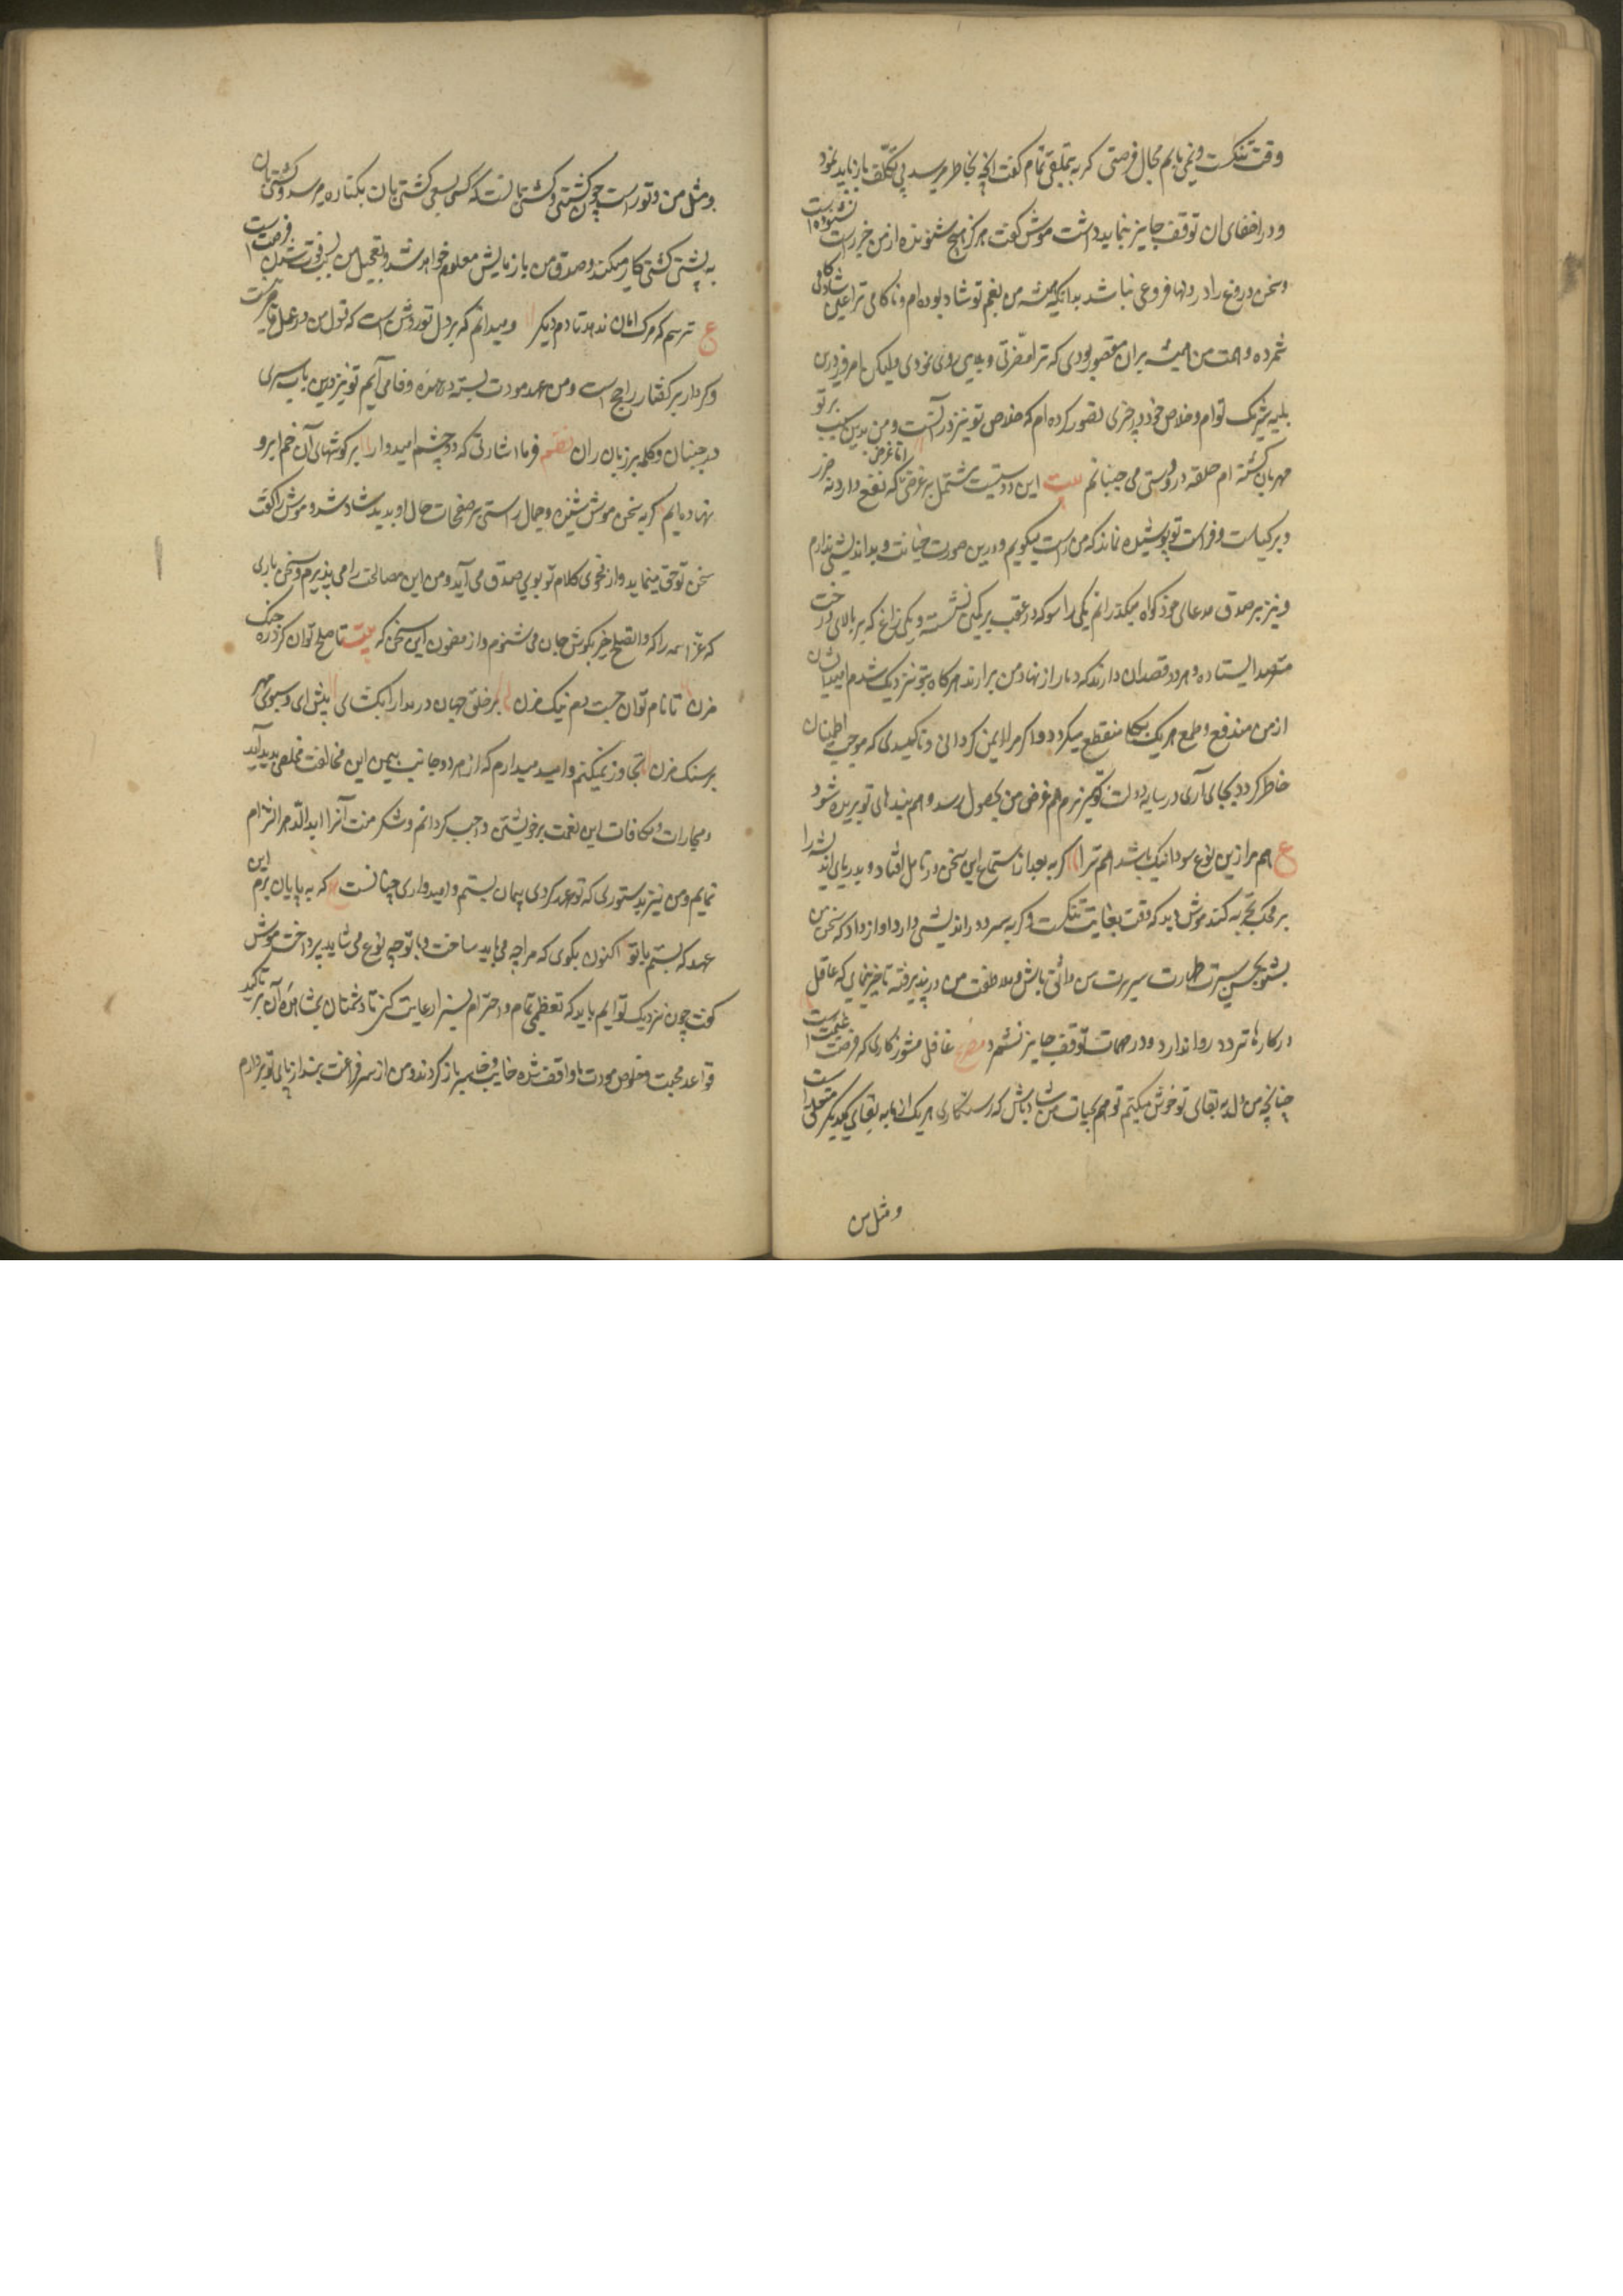 وقت تنکست و نمی یابم مجال فرصتی کربه بتملقی تمام کفت انچه بخاطر میرسد بی تکلف باز باید نمود
و در اخفای ان توقف جایز نباید داشت موش کفت هرکز هیچ شنونده از من جز راست نشنوده است
و سخن دروغ را در دلها فروغی نباشد بدانکه همیشه من بغم تو شاد بوده ام و ناکامی ترا عین شادکامی
شمرده و همت من همیشه بران مقصور بودی که ترا مضرتی و بدی روی نمودی ولیکن امروز درین
بلیه شریک توام و خلاص خود در چیزی تصور کرده ام که خلاص تو نیز در آنست و من بدین سبب بر تو
مهربان کشته ام حلقه در دوستی می جنبانم بیت این دوستیست مشتمل بر غرضی اما غرضی که نفع دارد نه ضرر
و بر کیاست و فراست تو پوشیده نماند که من راست میکویم و درین صورت خیانت و بداندیشی ندارم
و نیز بر صدق مدعای خود کواه میکذرانم یکی راسو که در عقب بر کمین نشسته و یکی زاغ که بر بالای درخت
مترصد ایستاده و هر دو قصد ان دارند که دمار از نهاد من برارند هرکاه بتو نزدیک شدم امید ایشان
از من مندفع و طمع هریک بکلی منقطع میکردد و اکر مرا ایمن کردانی و تاکیدی که موجب اطمینان
خاطر کردد بجای آری در سایه دولت تو کریزم هم غرض من بحصول رسد و هم بندهای تو بریده شود
ع هم مرا زین نوع سودا نیک باشد هم ترا کربه بعد از استماع این سخن در تامل افتاد و بدریای اندیشه را
بر محک تجربه کند موش دید که وقت بغایت تنکست و کربه سر دوراندیشی دارد اواز داد که سخن من
بشنو بحسن سیرت و طهارت سریرت من واثق باش و ملاطفت من در پذیرفته تاخیر نمای که عاقل
در کارها تردد روا ندارد و در مهمات توقف جایز نشمرد مصرع غافل مشو ز کاری که فرصت غنیمت است
چنانچه من دل به بقای تو خوش میکنم تو هم بحیات من شاد باش که رستکاری هریک از ما به بقای یکدیکر متعلق است
و مثل من
و مثل من و تو راست چون کشتی و کشتی بانست که کشتی بسعی کشتی بان بکناره میرسد و کشتی بان
به پشتی کشتی کار میکند و صدق من بازمایش معلوم خواهد شد و تعجیل من بسبب فوت شدن فرصت است
ع ترسم که مرک امان ندهد تا دم دیکر و میدانم که بر دل تو روشن است که قول من در عمل قاصر نیست
و کردار بر کفتار راجح است و من عهد مودت بسته در عهده وفا می آیم تو نیز درین باب سری
در جنبان و کلمه بر زبان ران نظم فرما اشارتی که دو چشم امیدوار بر کوشهای آن خم ابرو
نهاده ایم کربه سخن موش شنید و جمال راستی بر صفحات حال او بدید شاد شد و موش را کفت
سخن تو حق مینماید و از فحوی کلام تو بوی صدق می آید و من این مصالحت را می پذیرم و سخن باری
که عز اسمه را که والصلح خیر بکوش جان می شنوم و از مضمون این سخن که بیت تا صلح توان کرد در جنک
مزن تا نام توان جست دم نیک مزن بر خلق جهان در مدارا بکشای پیش ای و سبوی مهر
بر سنک مزن تجاوز نمیکنم و امید میدارم که از هر دو جانب بیمن این مخالفت مخلصی پدید آید
و مجازات و مکافات این نعمت بر خویشتن واجب کردانم و شکر منت آنرا ابد الدهر التزام
نمایم و من نیز بدستوری که تو عهد کردی پیمان بستم و امیدواری چنانست که به پایان برم این
عهد که بستم با تو اکنون بکوی که مرا چه می باید ساخت و با تو چه نوع می شاید پرداخت موش
کفت چون نزدیک تو ایم باید که تعظیمی تمام و احترام بسزا رعایت کنی تا دشمنان بمشاهده آن بر تاکید
قواعد محبت و خلوص مودت ما واقف شده خایب و خاسر باز کردند و من از سر فراغت بند از پای تو بردارم